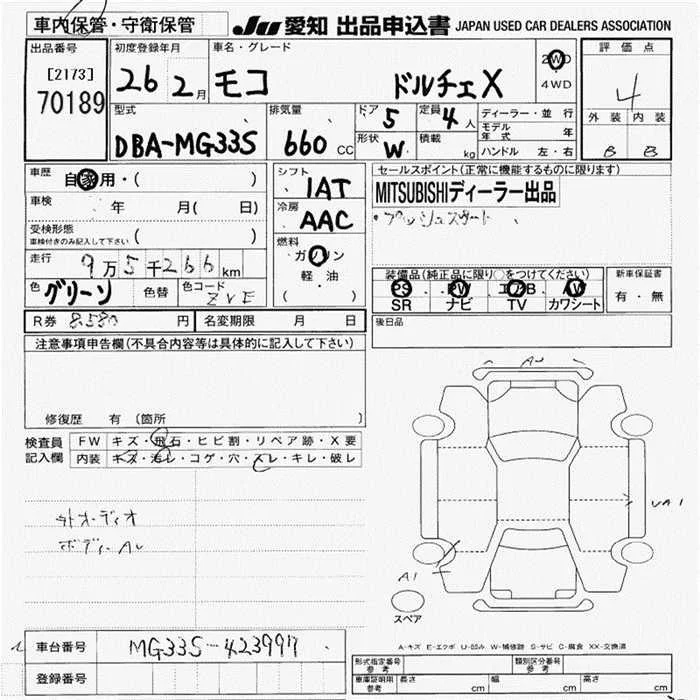 車内保管・守衛保管
JU 愛知 出品申込書 JAPAN USED CAR DEALERS ASSOCIATION
出品番号
[2173]
70189
初度登録年月
26 2月
車名・グレード
モコ ドルチェX
2WD
・
4WD
評価点
4
外装 内装
B B
型式
DBA-MG33S
排気量
660 CC
ドア 5
形状 W
定員 4人
積載 kg
ディーラー・並行
モデル年式 年
ハンドル 左・右
車歴
自家用・( )
車検 年 月( 日)
受検形態
車検付きのみ記入して下さい ( )
走行 9万5千266km
色 グリーン 色替 色コード ZVE
R券 8,580 円 名変期限 月 日
シフト
IAT
冷房
AAC
燃料
ガソリン
軽・油
( )
セールスポイント(正常に機能するものに限ります)
MITSUBISHIディーラー出品
・プッシュスタート
装備品(純正品に限り○をつけてください)
PS・PW・エアB・AW
SR ナビ TV カワシート
新車保証書
有・無
後日品
注意事項申告欄(不具合内容等は具体的に記入して下さい)
修復歴 有(箇所 )
検査員
記入欄
FW キズ・飛石・ヒビ割・リペア跡・X要
内装 キズ・汚レ・コゲ・穴・スレ・キレ・破レ
外オーディオ
ボディーAU
AU
UA1
A1
スペア
A-キズ E-エクボ U-凹み W-補修跡 S-サビ C-腐食 XX-交換済
車台番号 MG33S-423997
登録番号
型式指定番号
参考
類別区分番号
参考
車庫証明用
参考
長さ cm 幅 cm 高さ cm